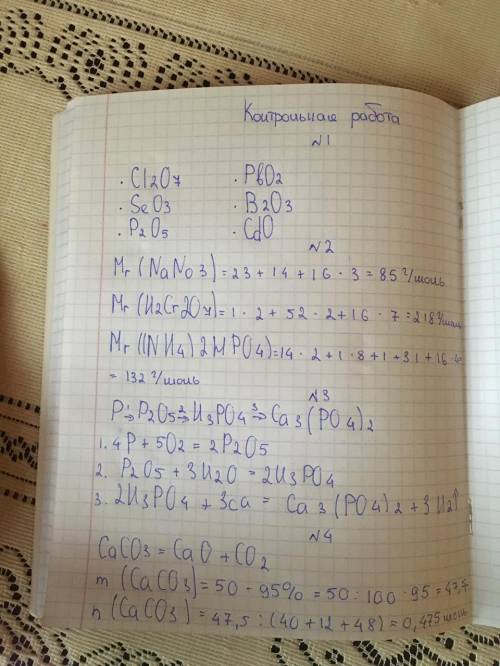 Контрольная работа
№1
· Cl2O7 · PbO2
· SeO3 · B2O3
· P2O5 · CdO
№2
Mr (NaNo3) = 23 + 14 + 16 · 3 = 85 г/моль
Mr (H2Cr2O7) = 1 · 2 + 52 · 2 + 16 · 7 = 218 г/моль
Mr ((NH4)2HPO4) = 14 · 2 + 1 · 8 + 1 + 31 + 16 · 4
= 132 г/моль
№3
P 1→ P2O5 2→ H3PO4 3→ Ca3(PO4)2
1. 4P + 5O2 = 2P2O5
2. P2O5 + 3H2O = 2H3PO4
3. 2H3PO4 + 3Ca = Ca3(PO4)2 + 3H2↑
№4
CaCO3 = CaO + CO2
m (CaCO3) = 50 · 95% = 50 : 100 · 95 = 47,5
n (CaCO3) = 47,5 : (40 + 12 + 48) = 0,475 моль